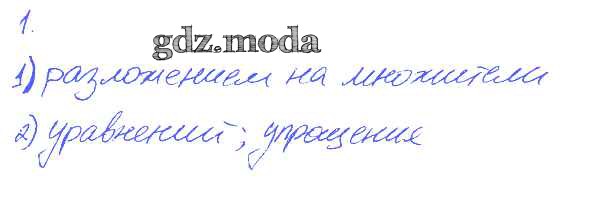 1.
gdz.moda
1) разложением на множители
2) уравнений; упрощения